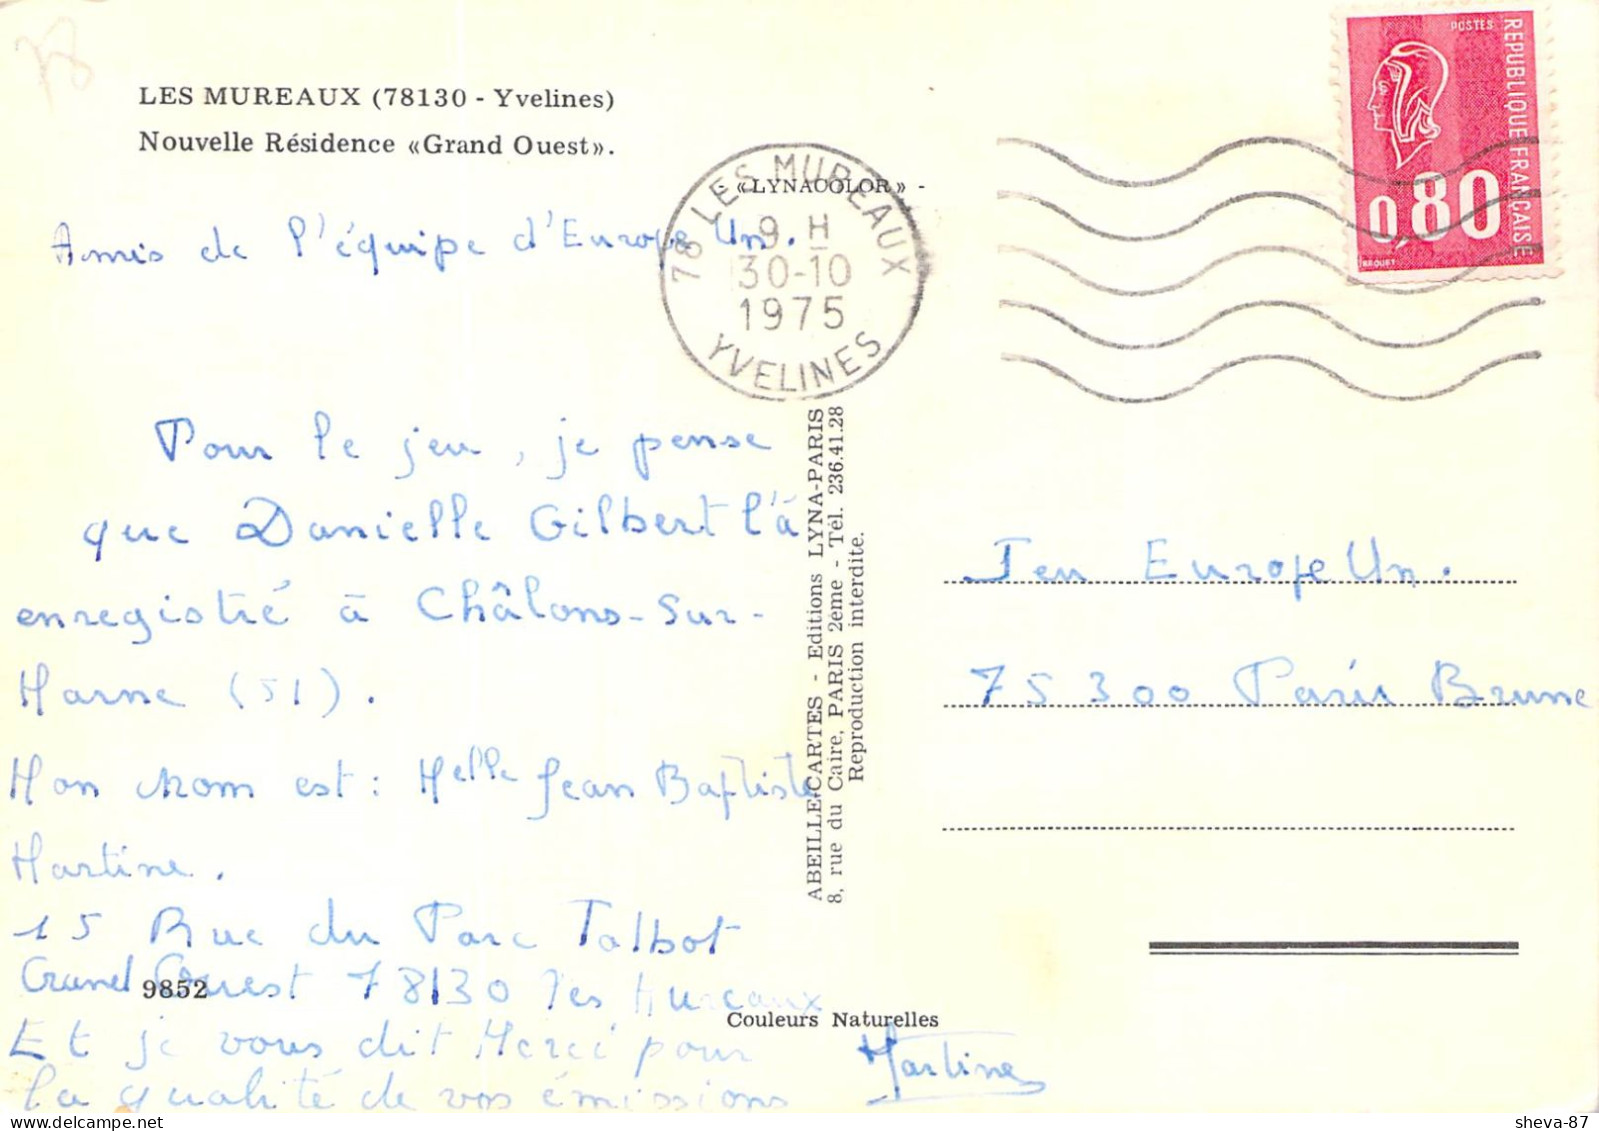 78
LES MUREAUX (78130 - Yvelines)
Nouvelle Résidence «Grand Ouest».
- «LYNACOLOR» -
78 LES MUREAUX
9 H
30-10
1975
YVELINES
POSTES
REPUBLIQUE FRANCAISE
0,80
BEQUET
Amis de l'équipe d'Europe Un.
Pour le jeu, je pense
que Danielle Gilbert l'à
enregistré à Châlons-Sur-
Marne (51).
Mon nom est : Melle Jean Baptiste
Martine.
15 Rue du Parc Talbot
Grand Ouest 78130 Les Mureaux
Et je vous dit Merci pour
la qualité de vos émissions
Martine
9852
Couleurs Naturelles
ABEILLE-CARTES - Editions LYNA-PARIS
8, rue du Caire, PARIS 2ème - Tél. 236.41.28
Reproduction interdite.
Jeu Europe Un.
75300 Paris Brune
sheva-87